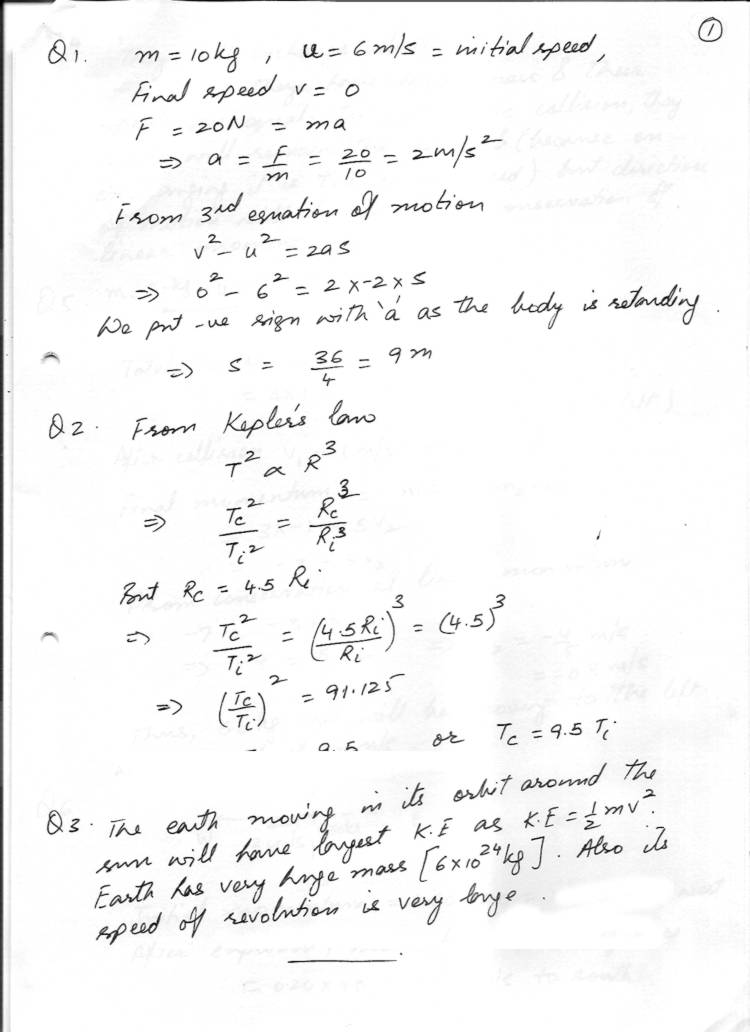 1
Q1. m = 10kg , u = 6 m/s = initial speed,
Final speed v = 0
F = 20N = ma
⇒ a = F/m = 20/10 = 2 m/s²
From 3rd equation of motion
v² - u² = 2as
⇒ 0² - 6² = 2 x -2 x s
We put -ve sign with 'a' as the body is retarding.
⇒ s = 36/4 = 9 m
Q2. From Kepler's law
T² ∝ R³
⇒ Tc²/Ti² = Rc³/Ri³
But Rc = 4.5 Ri
⇒ Tc²/Ti² = (4.5Ri/Ri)³ = (4.5)³
⇒ (Tc/Ti)² = 91.125
= 9.5 or Tc = 9.5 Ti
Q3. The earth moving in its orbit around the
sun will have largest K.E as K.E = ½mv².
Earth has very huge mass [6x10²⁴kg]. Also its
speed of revolution is very large.